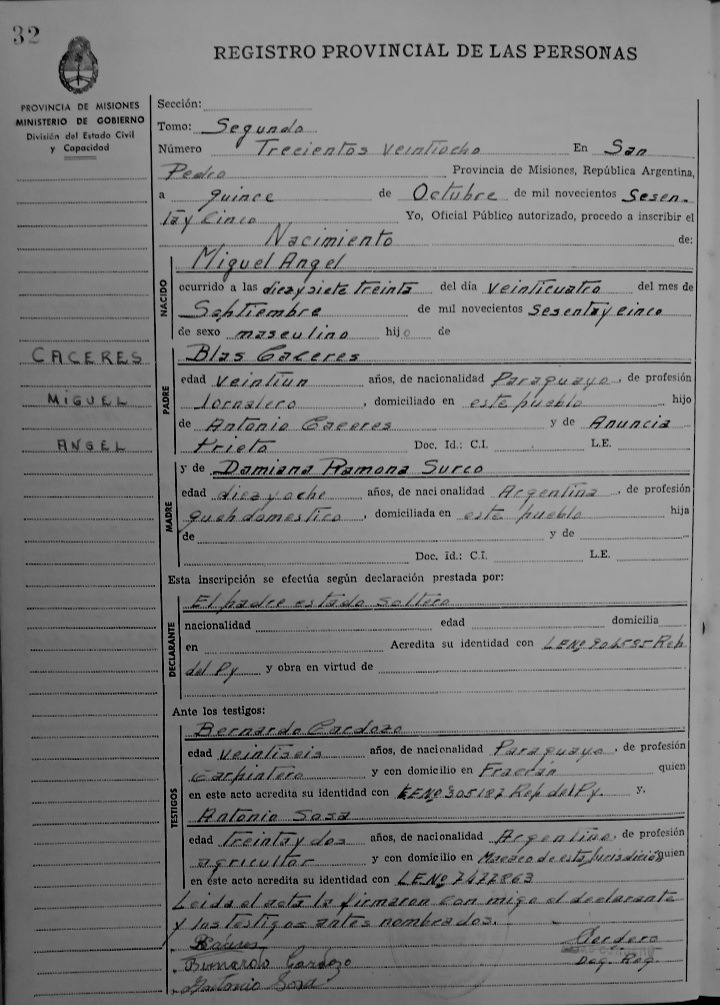 32
REGISTRO PROVINCIAL DE LAS PERSONAS
PROVINCIA DE MISIONES
MINISTERIO DE GOBIERNO
División del Estado Civil
y Capacidad
CACERES
MIGUEL
ANGEL
Sección:
Tomo: Segundo
Número Trecientos veintiocho En San
Pedro Provincia de Misiones, República Argentina,
a quince de Octubre de mil novecientos Sesen-
ta y Cinco Yo, Oficial Público autorizado, procedo a inscribir el
Nacimiento de:
NACIDO
Miguel Angel
ocurrido a las diez y siete treinta del día veinticuatro del mes de
Septiembre de mil novecientos Sesenta y cinco
de sexo masculino hijo de
Blas Caceres
PADRE
edad veintiun años, de nacionalidad Paraguayo, de profesión
Jornalero, domiciliado en este pueblo hijo
de Antonio Caceres y de Anuncia
Prieto Doc. Id.: C.I. L.E.
y de Damiana Ramona Surco
MADRE
edad diez y oche años, de nacionalidad Argentina, de profesión
queh domestico, domiciliada en este pueblo hija
de y de
Doc. Id.: C.I. L.E.
Esta inscripción se efectúa según declaración prestada por:
DECLARANTE
El padre estado soltero
nacionalidad edad domicilia
en Acredita su identidad con L.E.Nº 906595 Rep
del Py y obra en virtud de
Ante los testigos:
TESTIGOS
Bernardo Cardozo
edad veintiseis años, de nacionalidad Paraguayo, de profesión
Carpintero y con domicilio en Fracrán quien
en este acto acredita su identidad con L.E.Nº 305187 Rep del Py. y,
Antonio Sosa
edad treinta y dos años, de nacionalidad Argentino, de profesión
agricultor y con domicilio en de esta Jurisdición quien
en este acto acredita su identidad con L.E.Nº 7477863
Leida el acta la firmaron con migo el declarante
y los testigos antes nombrados.
Bernardo Cardozo
Antonio Sosa
Cordero
Reg.